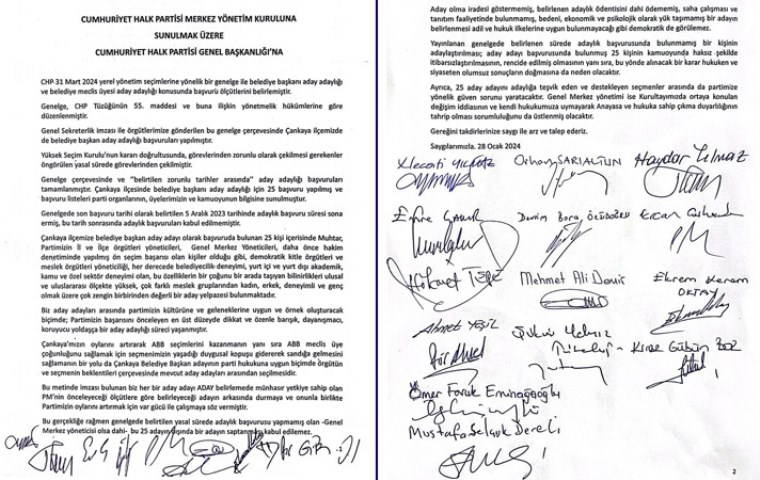 CUMHURİYET HALK PARTİSİ MERKEZ YÖNETİM KURULUNA
SUNULMAK ÜZERE
CUMHURİYET HALK PARTİSİ GENEL BAŞKANLIĞI'NA
CHP 31 Mart 2024 yerel yönetim seçimlerine yönelik bir genelge ile belediye başkanı aday adaylığı
ve belediye meclis üyesi aday adaylığı konusunda başvuru ölçütlerini belirlemiştir.
Genelge, CHP Tüzüğünün 55. maddesi ve buna ilişkin yönetmelik hükümlerine göre
düzenlenmiştir.
Genel Sekreterlik imzası ile örgütlerimize gönderilen bu genelge çerçevesinde Çankaya ilçemizde
de belediye başkan aday adaylığı başvuruları yapılmıştır.
Yüksek Seçim Kurulu'nun kararı doğrultusunda, görevlerinden zorunlu olarak çekilmesi gerekenler
öngörülen yasal sürede görevlerinden çekilmiştir.
Genelge çerçevesinde ve "belirtilen zorunlu tarihler arasında" aday adaylığı başvuruları
tamamlanmıştır. Çankaya ilçesinde belediye başkanı aday adaylığı için 25 başvuru yapılmış ve
başvuru listeleri parti organlarının, üyelerimizin ve kamuoyunun bilgisine sunulmuştur.
Genelgede son başvuru tarihi olarak belirtilen 5 Aralık 2023 tarihinde adaylık başvuru süresi sona
ermiş, bu tarih sonrasında adaylık başvuruları kabul edilmemiştir.
Çankaya ilçemize belediye başkan aday adayı olarak başvuruda bulunan 25 kişi içerisinde Muhtar,
Partimizin İl ve İlçe örgütleri yöneticileri, Genel Merkez Yöneticileri, daha önce hakim
denetiminde yapılmış ön seçim başarısı olan kişiler olduğu gibi, demokratik kitle örgütleri ve
meslek örgütleri yöneticiliği, her derecede belediyecilik deneyimi, yurt içi ve yurt dışı akademik,
kamu ve özel sektör deneyimi olan, bu özelliklerin bir çoğunu bir arada taşıyan bilinirlikleri ulusal
ve uluslararası ölçekte yüksek, çok farklı meslek gruplarından kadın, erkek, deneyimli ve genç
olmak üzere çok zengin birbirinden değerli bir aday yelpazesi bulunmaktadır.
Biz aday adayları arasında partimizin kültürüne ve geleneklerine uygun ve örnek oluşturacak
biçimde; Partimizin başarısını önceleyen en üst düzeyde dikkat ve özenle barışık, dayanışmacı,
koruyucu yoldaşça bir aday adaylığı süreci yaşanmıştır.
Çankaya'mızın oylarını artırarak ABB seçimlerini kazanmanın yanı sıra ABB meclis üye
çoğunluğunu sağlamak için seçmenimizin yaşadığı duygusal kopuşu gidererek sandığa gelmesini
sağlamanın bir yolu da Çankaya Belediye Başkan adayının parti hukukuna uygun biçimde örgütün
ve seçmenin beklentileri çerçevesinde mevcut aday adayları arasından seçilmesidir.
Bu metinde imzası bulunan biz her bir aday adayı ADAY belirlemede münhasır yetkiye sahip olan
PM'nin önceleyeceği ölçütlere göre belirleyeceği adayın arkasında durmaya ve onunla birlikte
Partimizin oylarını artırmak için var gücü ile çalışmaya söz vermiştir.
Bu gerçekliğe rağmen genelgede belirtilen yasal sürede adaylık başvurusu yapmamış olan -Genel
Merkez yöneticisi olsa dahi- bu 25 adayın dışında bir adayın saptanması kabul edilemez.
Aday olma iradesi göstermemiş, belirlenen adaylık ödentisini dahi ödememiş, saha çalışması ve
tanıtım faaliyetinde bulunmamış, bedeni, ekonomik ve psikolojik olarak yük taşımamış bir adayın
belirlenmesi adil ve hukuk ilkelerine uygun bulunmayacağı gibi demokratik de görülemez.
Yayınlanan genelgede belirlenen sürede adaylık başvurusunda bulunmamış bir kişinin
adaylaştırılması; aday adayı başvurusunda bulunmuş 25 kişinin kamuoyunda haksız şekilde
itibarsızlaştırılmasının, rencide edilmiş olmasının yanı sıra, bu yönde alınacak bir karar hukuken ve
siyaseten olumsuz sonuçların doğmasına da neden olacaktır.
Ayrıca, 25 aday adayını adaylığa teşvik eden ve destekleyen seçmenler arasında da partimize
yönelik güven sorunu yaratacaktır. Genel Merkez yönetimi ise Kurultayımızda ortaya konulan
değişim iddiasının ve kendi hukukumuza uymayarak Anayasa ve hukuka sahip çıkma duyarlığının
tahrip olması sorumluluğunu da üstlenmiş olacaktır.
Gereğini takdirlerinize saygı ile arz ve talep ederiz.
Saygılarımızla. 28 Ocak 2024
Necati YILMAZ Orhan SARIALTUN Haydar Yılmaz
Emre Deniz Bora
Hikmet TEPE Mehmet Ali Demir Ekrem Kerem
OKTAY
Ahmet YEŞİL Şükrü Yılmaz
Ömer Faruk Eminağaoğlu
Mustafa Selçuk Dereli
2